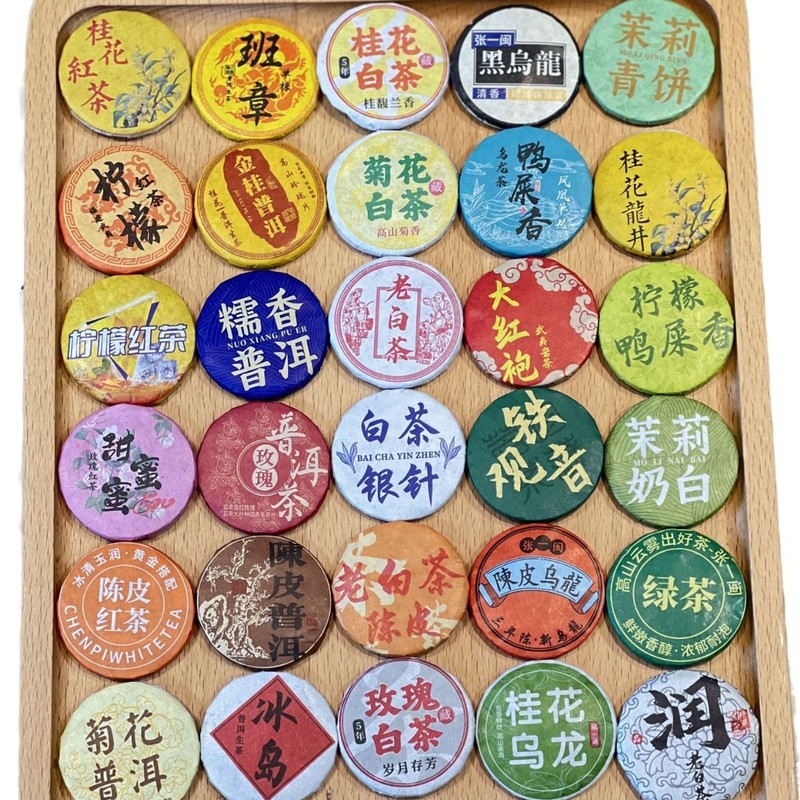 桂花
紅茶
班章
單株
桂花
白茶
5年
藏
桂馥兰香
张一闽
黑烏龍
清香
茉莉
MO LI QING BING
青饼
柠檬
红茶
金桂普洱
高山玲珑片
桂花普洱生茶
菊花
白茶
藏
高山菊香
鸭屎香
乌龙茶
凤凰单丛
桂花龍井
柠檬红茶
糯香
NUO XIANG PU ER
普洱
老白茶
大红袍
武夷岩茶
柠檬
鸭屎香
甜蜜蜜
玫瑰红茶
普洱茶
玫瑰
白茶
BAI CHA YIN ZHEN
银针
铁观音
茉莉
MO LI NAI BAI
奶白
冰清玉润·黄金搭配
陈皮
红茶
CHENPIWHITETEA
陳皮普洱
老白茶
陈皮
张一闽
陳皮乌龍
三年陈·新乌龍
高山云雾出好茶·张一闽
绿茶
鲜嫩香醇·浓郁耐泡
菊花
普洱
冰岛
普洱生茶
玫瑰
白茶
5年
藏
岁月存芳
桂花
乌龙
润
老白茶